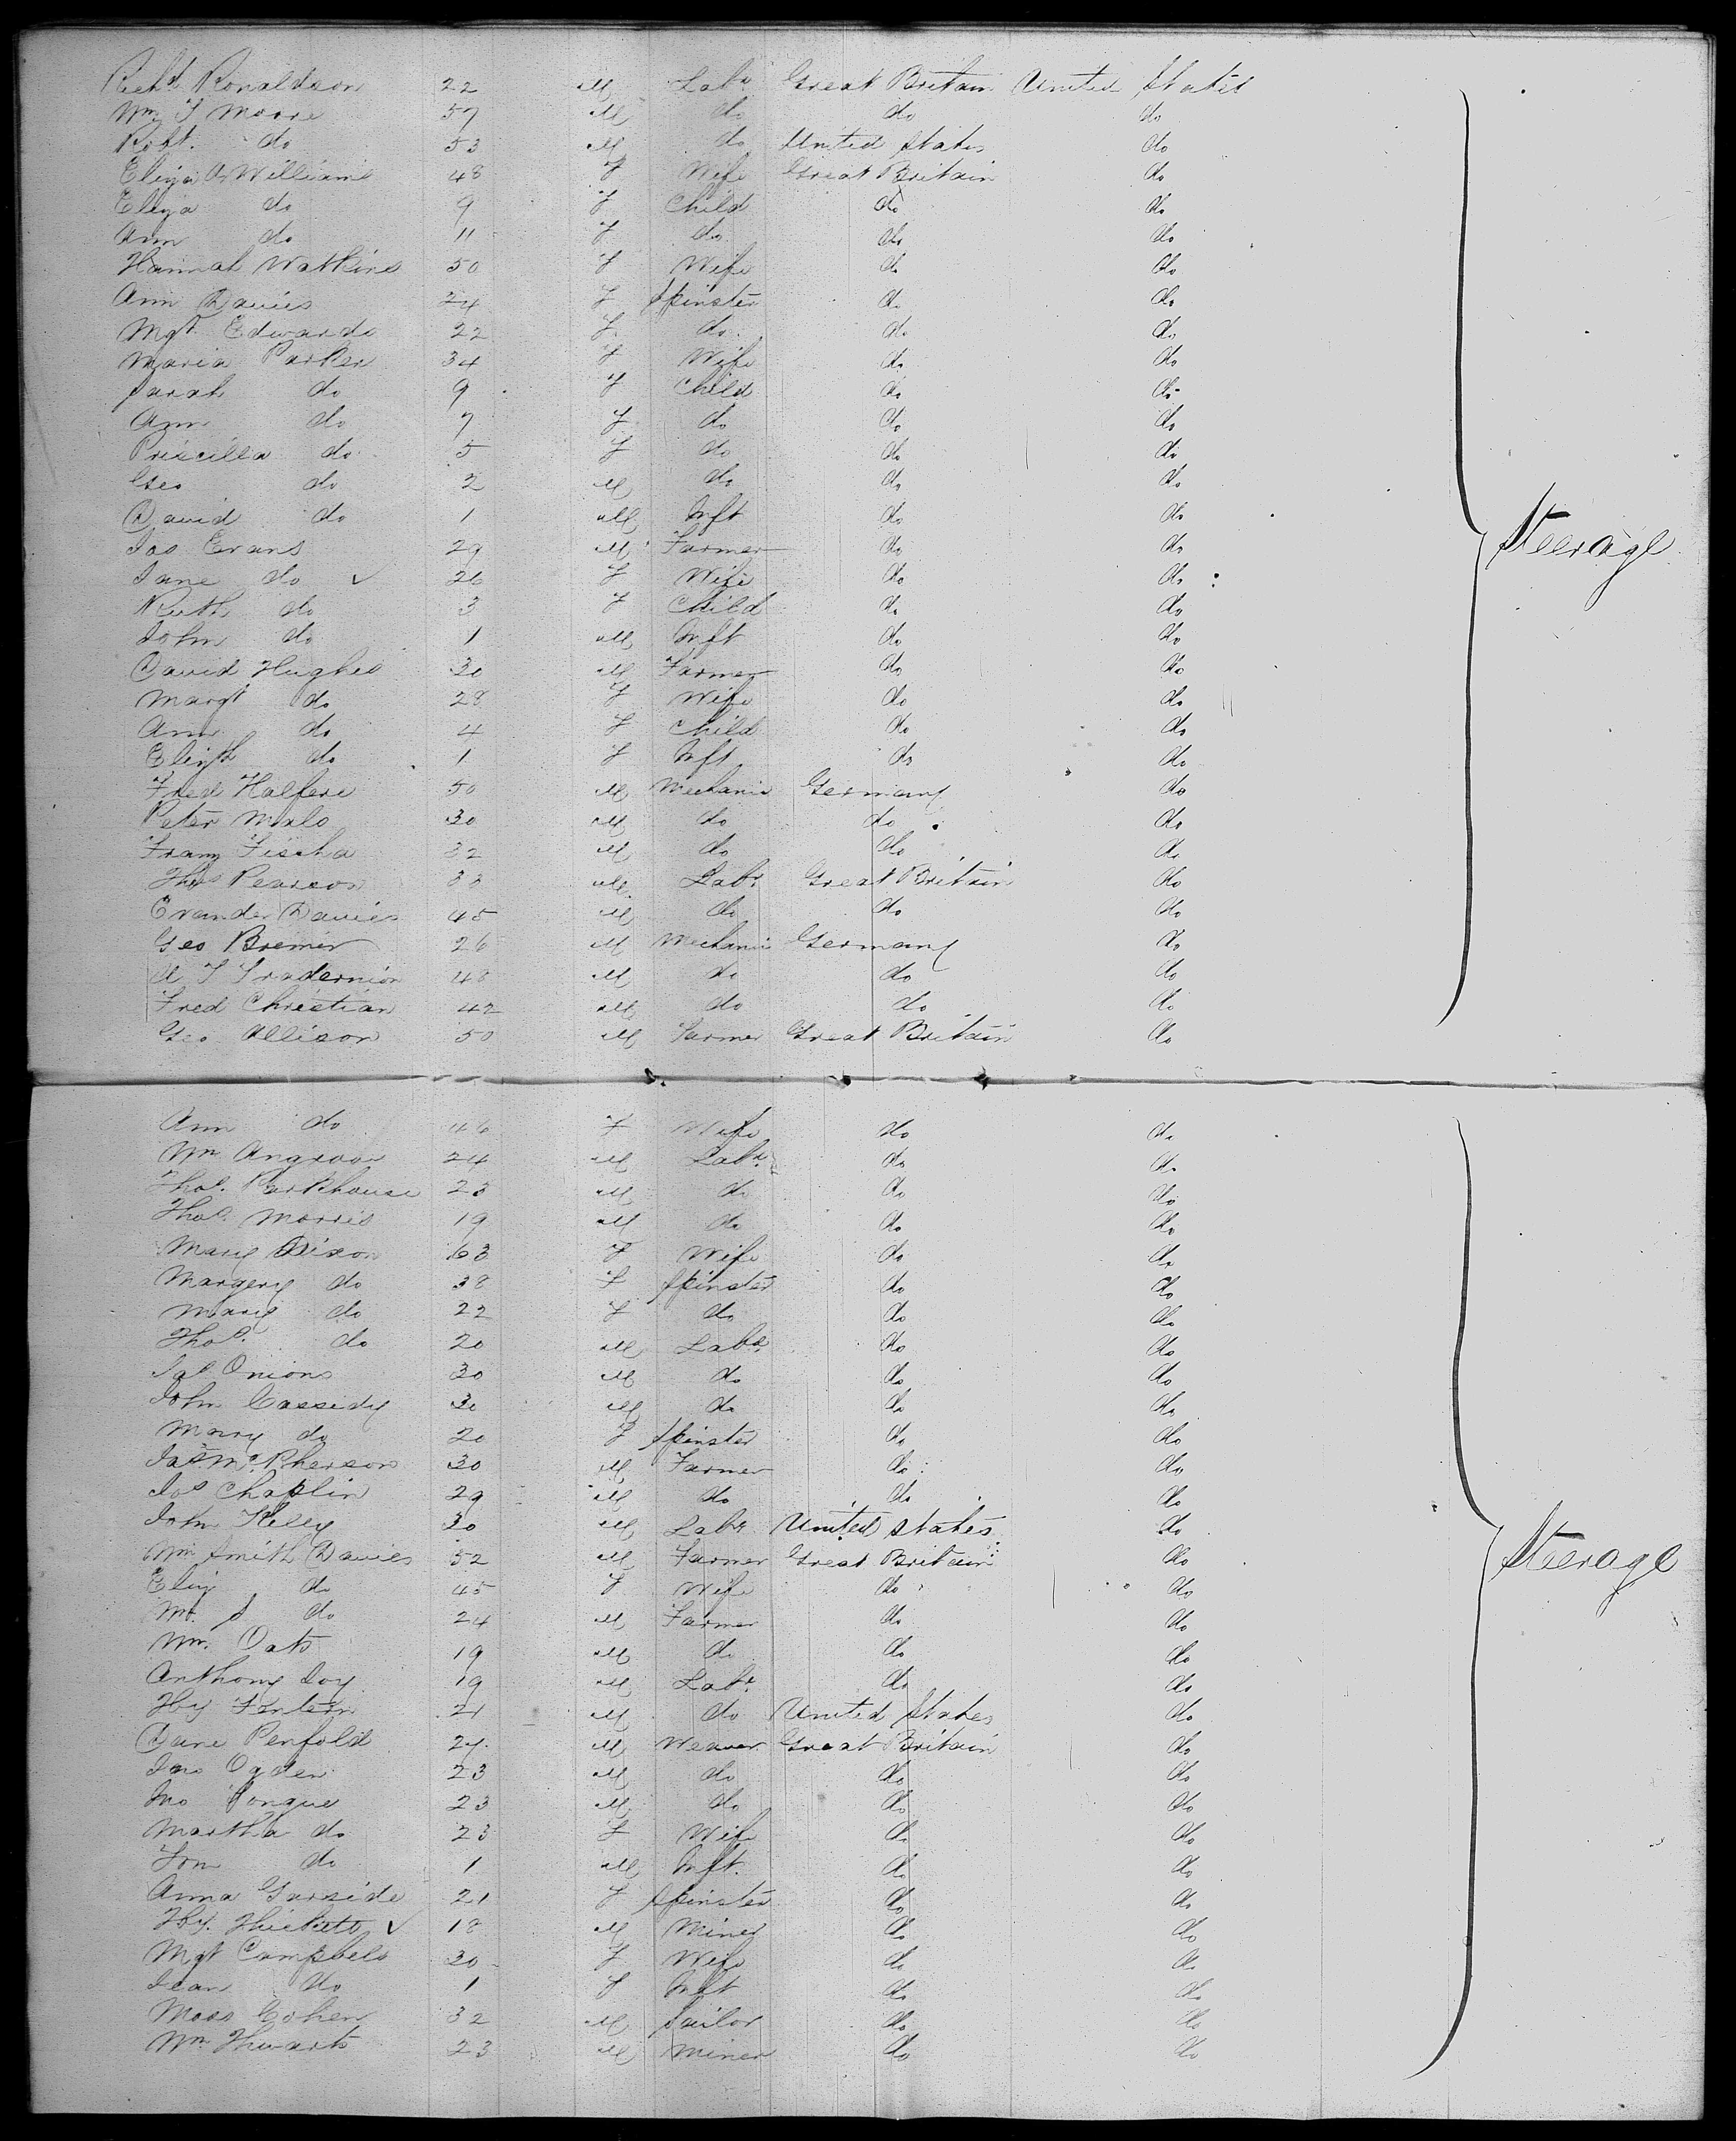 Richd Ronaldson 22 M Labr Great Britain United States
Wm J Moore 57 M do do do
Robt. do 53 M do United States do
Eliza A Williams 48 F Wife Great Britain do
Eliza do 9 F Child do do
Ann do 11 F do do do
Hannah Watkins 50 F Wife do do
Ann Davies 24 F Spinster do do
Mgt Edwards 22 F do do do
Maria Parker 34 F Wife do do
Sarah do 9 F Child do do
Ann do 7 F do do do
Priscilla do 5 F do do do
Geo do 2 M do do do
David do 1 M Inft do do
Steerage
Jas Evans 29 M Farmer do do
Jane do ✓ 26 F Wife do do
Ruth do 3 F Child do do
John do 1 M Inft do do
David Hughes 30 M Farmer do do
Margt do 28 F Wife do do
Ann do 4 F Child do do
Elizth do 1 F Inft do do
Fred Halfere 50 M Mechanic Germany do
Peter Malo 30 M do do do
Franz Fischa 32 M do do do
Thos Pearson 33 M Labr Great Britain do
Evander Davies 45 M do do do
Geo Bremer 26 M Mechanic Germany do
48 M do do do
Fred Christian 42 M do do do
Geo Allison 50 M Farmer Great Britain do
Ann do 46 F Wife do do
Wm 24 M Labr do do
Thos. Parkhouse 23 M do do do
Thos. Morris 19 M do do do
Mary Dixon 63 F Wife do do
Margery do 38 F Spinster do do
Mary do 22 F do do do
Thos. do 20 M Labr do do
Jas Onions 30 M do do do
John Cassidy 30 M do do do
Mary do 20 F Spinster do do
Jas McPherson 30 M Farmer do do
Jos Chaplin 29 M do do do
John Kelly 30 M Labr United States do
Wm Smith Davies 52 M Farmer Great Britain do
Steerage
Eliz do 45 F Wife do do
Wm. S do 24 M Farmer do do
Wm. Oats 19 M do do do
Anthony Joy 19 M Labr do do
Hy Fenten 21 M do United States do
Dane Penfold 24 M Weaver Great Britain do
Jas Ogden 23 M do do do
Jno Pongue 23 M do do do
Martha do 23 F Wife do do
Tom do 1 M Inft. do do
Anna Garside 21 F Spinster do do
Hy. ✓ 18 M Miner do do
Mgt Campbell 30 F Wife do do
Jean do 1 F Inft do do
Moss Cohen 32 M Tailor do do
Wm Thwarts 23 M Miner do do